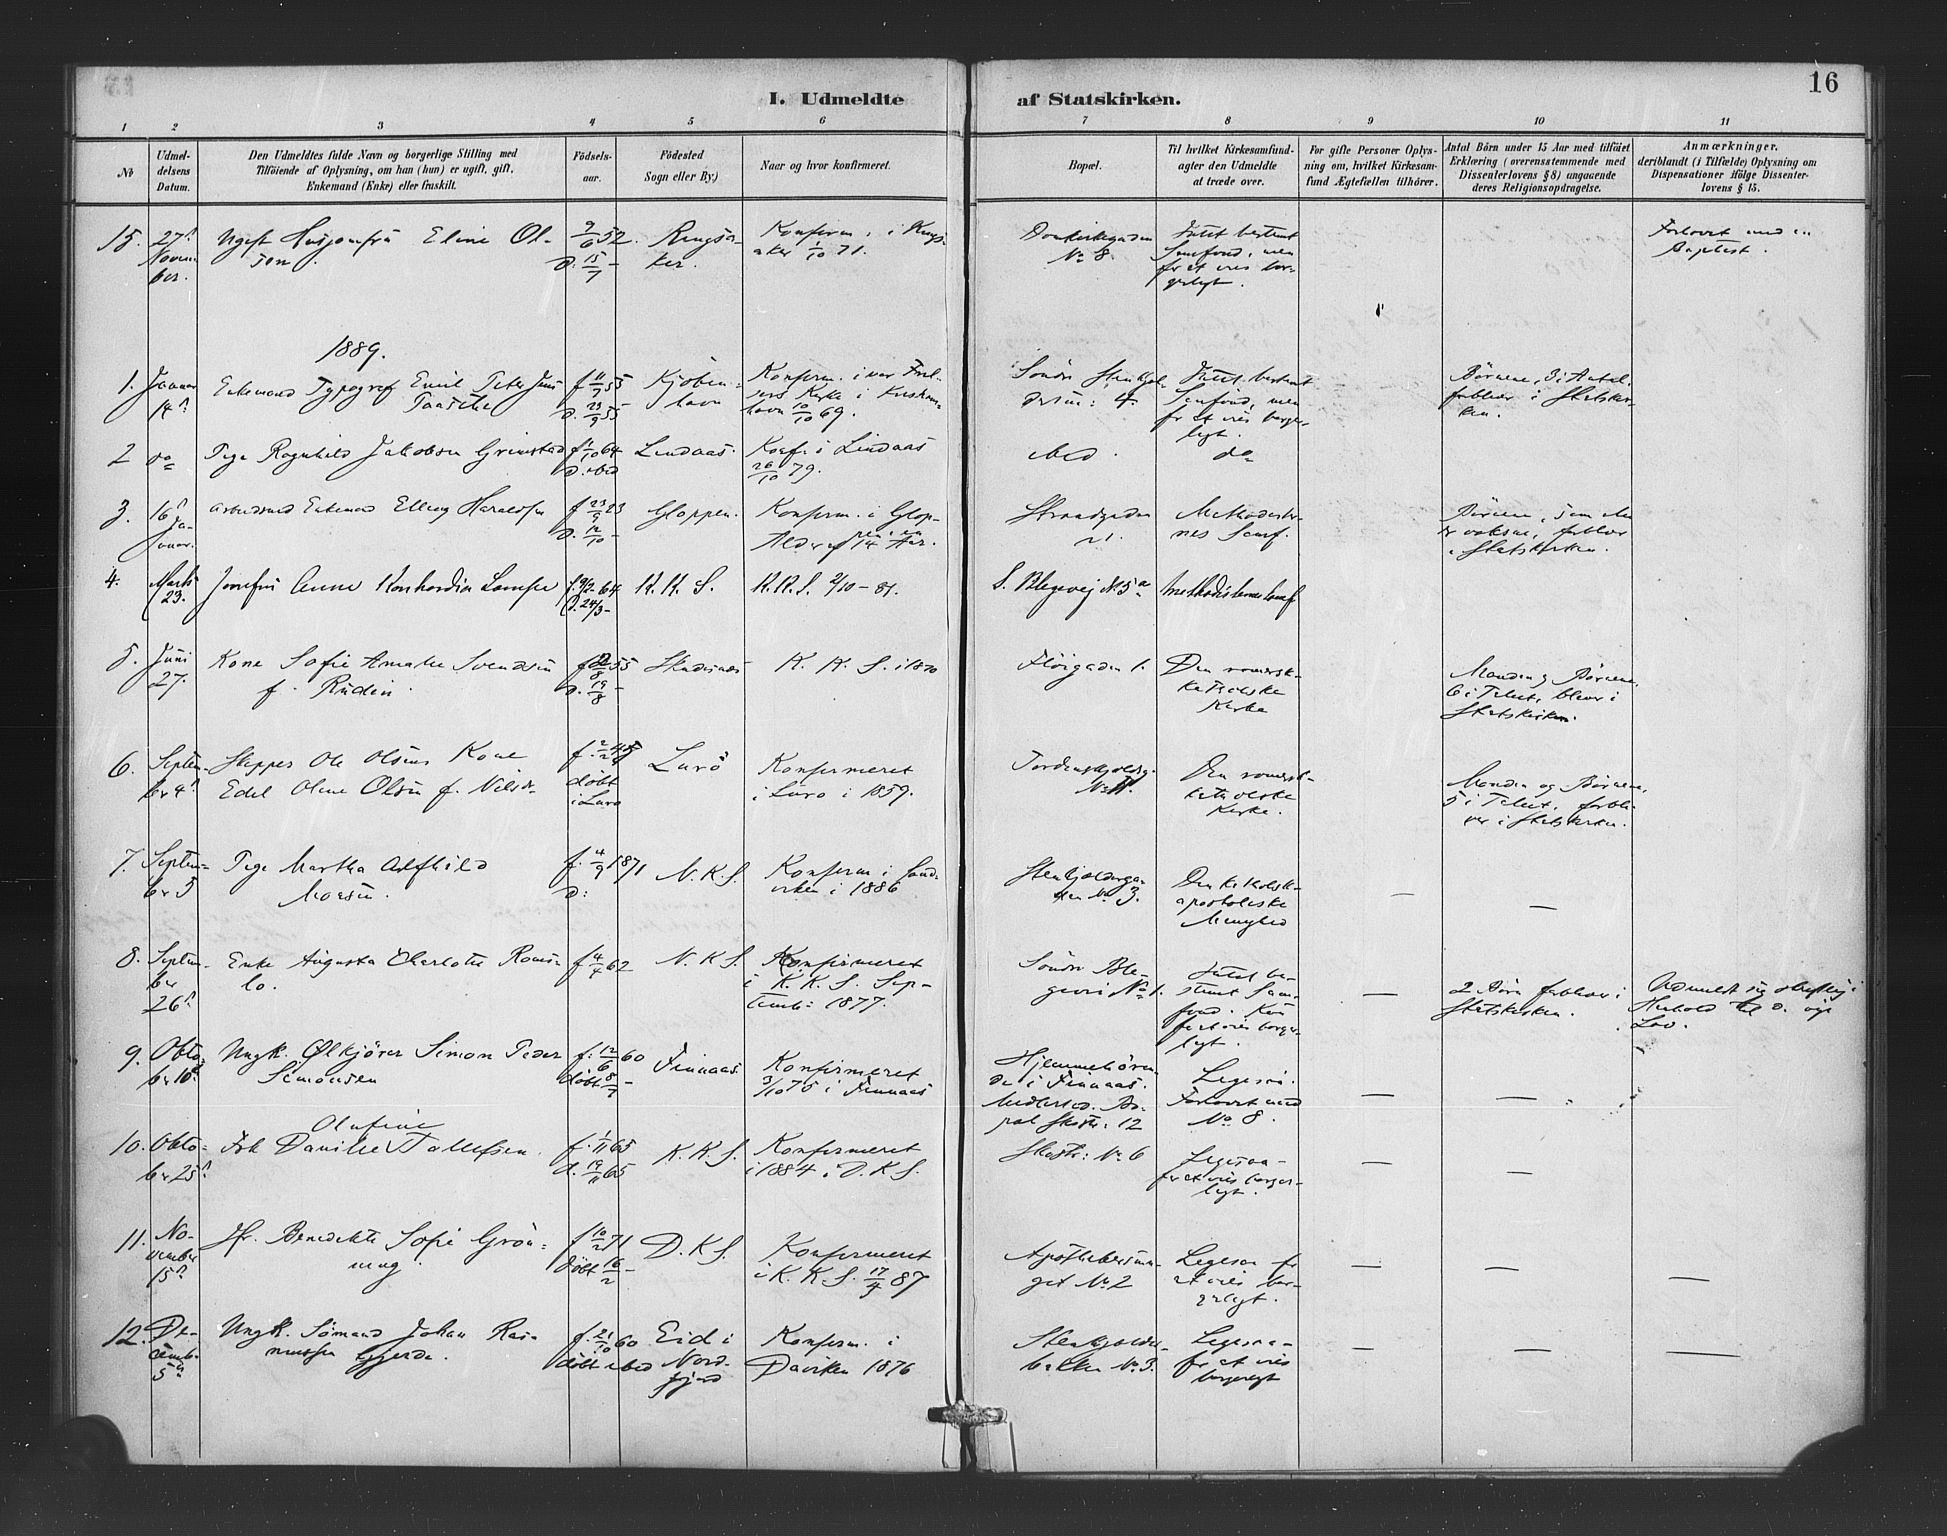 16
I. Udmeldte af Statskirken.
1 2 3 4 5 6 7 8 9 10 11
No
Udmel-
delsens
Datum.
Den Udmeldtes fulde Navn og borgerlige Stilling med
Tilföiende af Oplysning, om han (hun) er ugift, gift,
Enkemand (Enke) eller fraskilt.
Födsels-
aar.
Födested
Sogn eller By.)
Naar og hvor konfirmeret.
Bopæl.
Til hvilket Kirkesamfund-
agter den Udmeldte
at træde over.
For gifte Personer Oplys-
ning om, hvilket Kirkesam-
fund Ægtefællen tilhörer.
Antal Börn under 15 Aar med tilföiet
Erklæring (overensstemmende med
Dissenterlovens § 8) angaaende
deres Religionsopdragelse.
Anmærkninger,
deriblandt (i Tilfælde) Oplysning om
Dispensationer ifölge Dissenter-
lovens § 15.
15. 27
Novem
ber.
Ugift Husjomfru Eline Ol-
sen
9/6 52.
d. 15/7 -
Ringsa-
ker.
Konfirm. i Rings-
aker 1/10 71.
Domkirkegaden
No 8.
Intet bestemt
Samfund, men
for at vies bor-
gerligt.
Forlovet med en
Baptist.
1889.
1. Januar
14
Enkemand Typograf Emil Peter
f 11/9 55
d. 23/9 55
Kjöben-
havn
Konfirm. i vor Frel-
sers Kirke i
havn 10/10 69.
Söndre
4.
Intet bestemt
Samfund, men
for at vies borger-
ligt.
Börnene, 3 i Antal,
forblive i Statskir-
ken.
2 do
Pige Ragnhild Jakobsen Grimstad
f 1/10 64
d. ibid
Lindaas.
Konf. i Lindaas
26/10 79.
ibid.
do
3. 16
Ja-
nuar.
Arbeidsmand Enkemand Elling Haraldsen
f 23/9 23
d. 12/10 -
Gloppen.
Konfirm. i Glop-
pen i en
Alder af 14 Aar.
Strandgaden
21.
Methodister-
nes Samf.
Börnene, som alle
er voksne, forblive
i Statskirken.
4. Marts
23.
Jomfru Anne Konkordia Lampe
f. 9/2 64
d. 24/3 -
K. K. S.
K.K.S. 2/10 - 81.
S. Blegevej N. 5a
Methodisternes Samf
5. Juni
27.
Kone Sofie Amalie Svendsen
f. Rudin.
55
d. 19/8 -
Skudesnæs
K. K. S. i 1870
Flöigaden 1.
Den romersk-
katholske
Kirke
Manden og Börnene,
6 i Tallet, bliver i
Statskirken.
6. Septem-
ber 4
Skipper Ole Olsens Kone
Edel Oline Olsen f. Nils
f. 2/2
döbt
i Lurö
Lurö
Konfirmeret
i Lurö i 1859.
Tordenskjoldsg.
No 11.
Den romersk-
katholske
Kirke.
Manden og Börnene,
5 i Tallet, forbli-
ver i Statskirken.
7. Septem-
ber 5
Pige Martha Alfhild
Monsen.
f. 4/9 1871
d:
N.K.S.
Konfirm i Sand-
viken i 1886
Stenkjeldersga-
den No 3.
Den katholsk-
apostoliske
Menighed
—
—
8. Septem-
ber
26
Enke Augusta Charlotte
lo.
f 4/4 62
N. K S.
Konfirmeret
i K. K. S. Sep-
temb: 1877.
Söndre Ble-
gevei No 1.
Intet be-
stemt Sam-
fund. Kun
for at vies borger-
ligt.
—
2 Börn forblive i
Statskirken.
Udmeldt sig skriftlig i
Henhold til d. nye
Lov.
9. Okto-
ber 10
Ungk. Ølkjörer Simon Peder
Simonsen
f: 12/6 60
döbt 8/7 -
Finnaas.
Konfirmeret
3/10 75 i Finnaas
Hjemmehören-
de i Finnaas.
Midlertid. Bo-
pæl Skostr. 12
Ligesaa.
Forlovet med
No 8.
—
—
10. Okto-
ber 25
Olufine
Frk Danilie Tollefsen.
f. 1/11 65
d. 19/11 65
K. K S.
Konfirmeret
i 1884 i D. K S.
Skostr: No 6
Ligesaa-
for at vies borger-
ligt.
—
—
11. No-
vember
15
Jfr. Benedikte Sofie Grön-
ning.
f 10/2 71
döbt 16/2 -
D. K S.
Konfirmeret
i K. K. S. 17/4 87
Apothekersmu-
get No 2
Ligesaa for
at vies bor-
gerligt.
—
—
—
12. De-
cemb.
5
Ungk. Sömand Johan Ras-
mussen
f. 21/10 60
döbt ibid
Eid i
Nord-
fjord
Konfirm. i
Daviken 1876
Stenkjelder-
bakken No 3.
Ligesaa-
for at vies
borgerligt
—
—
—